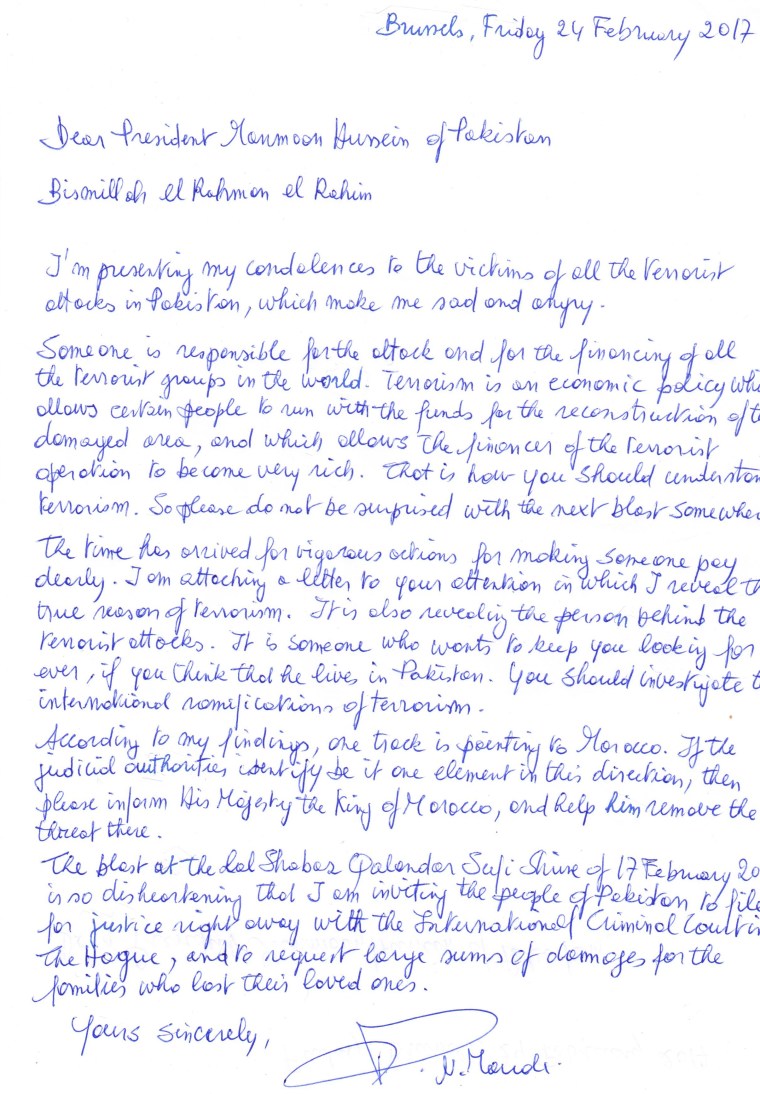 Brussels, Friday 24 February 2017
Dear President Manmoon Hussein of Pakistan
Bismillah el Rahman el Rahim
I'm presenting my condolences to the victims of all the terrorist
attacks in Pakistan, which make me sad and angry.
Someone is responsible for the attack and for the financing of all
the terrorist groups in the world. Terrorism is an economic policy whi
allows certain people to run with the funds for the reconstruction of t
damaged area, and which allows the financer of the terrorist
operation to become very rich. That is how you should understan
terrorism. So please do not be surprised with the next blast somewher
The time has arrived for vigorous actions for making someone pay
dearly. I am attaching a letter to your attention in which I reveal th
true reason of terrorism. It is also revealing the person behind the
terrorist attacks. It is someone who wants to keep you looking for
ever, if you think that he lives in Pakistan. You should investigate t
international ramifications of terrorism.
According to my findings, one track is pointing to Morocco. If the
judicial authorities identify be it one element in this direction, then
please inform His Majesty the King of Morocco, and help him remove the
threat there.
The blast at the Lal Shabaz Qalandar Sufi Shrine of 17 February 20
is so disheartening that I am inviting the people of Pakistan to file
for justice right away with the International Criminal Court in
The Hague, and to request large sums of damages for the
families who lost their loved ones.
Yours sincerely,